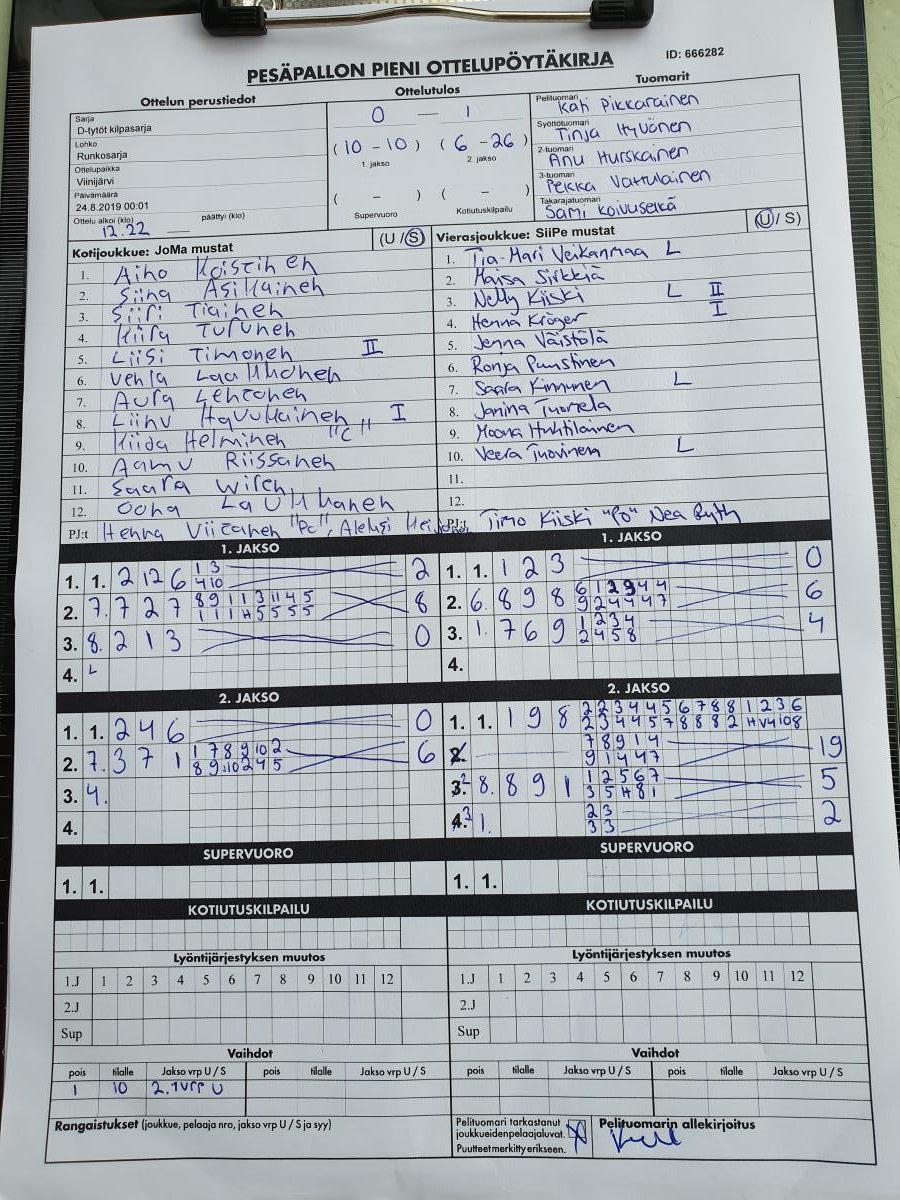 PESÄPALLON PIENI OTTELUPÖYTÄKIRJA
ID: 666282
Ottelun perustiedot
Sarja
D-tytöt kilpasarja
Lohko
Runkosarja
Ottelupaikka
Viinijärvi
Päivämäärä
24.8.2019 00:01
Ottelu alkoi (klo) 12.22 päättyi (klo)
Ottelutulos
0 — 1
(10 - 10) (6 - 26)
1. jakso 2. jakso
( - ) ( - )
Supervuoro Kotiutuskilpailu
Tuomarit
Pelituomari Kati Pikkarainen
Syöttötuomari Tinja Hyvönen
2-tuomari Anu Hurskainen
3-tuomari Pekka Vattulainen
Takarajatuomari Sami Koivuselkä
Kotijoukkue: JoMa mustat (U / S)
1. Aino Koistinen
2. Siina Asikainen
3. Siiri Tiainen
4. Kiira Turunen
5. Liisi Timonen II
6. Venla Laakkonen
7. Aura Lehtonen
8. Liinu Havukainen I
9. Kiida Helminen "C"
10. Aamu Riissanen
11. Saara Wiren
12. Oona Laukkanen
PJ:t Henna Viitanen "PC", Aleksi
Vierasjoukkue: SiiPe mustat (U / S)
1. Tia-Mari Veikanmaa L
2. Maisa Sirkkiä
3. Nelly Kiiski L II
4. Henna Kröger I
5. Jenna Väistölä
6. Ronja Puustinen
7. Saara Kinnunen L
8. Janina Tuomela
9. Moona Huhtilainen
10. Veera Tuovinen L
11.
12.
PJ:t Timo Kiiski "PO" Nea
1. JAKSO
1. 1. 2 12 6 1 3 2
4 10
2. 7. 7 2 7 8 9 1 1 3 11 4 5 8
1 1 1 H 5 5 5 5
3. 8. 2 1 3 0
4. 4
1. JAKSO
1. 1. 1 2 3 0
2. 6. 8 9 8 6 1 2 3 4 4 6
9 2 4 4 4 7
3. 1. 7 6 9 1 2 3 4 4
2 4 5 8
4.
2. JAKSO
1. 1. 2 4 6 0
2. 7. 3 7 1 1 7 8 9 10 2 6
8 9 10 2 4 5
3. 4.
4.
2. JAKSO
1. 1. 1 9 8 2 2 3 4 4 5 6 7 8 8 1 2 3 6
2 3 4 4 5 7 8 8 8 2 H V4 10 8
2. 7 8 9 1 4 19
9 1 4 4 7
3. 2 8. 8 9 1 1 2 5 6 7 5
3 5 H 8 1
4. 3 1. 2 3 2
3 3
SUPERVUORO
1. 1.
SUPERVUORO
1. 1.
KOTIUTUSKILPAILU
KOTIUTUSKILPAILU
Lyöntijärjestyksen muutos
1.J 1 2 3 4 5 6 7 8 9 10 11 12
2.J
Sup
Lyöntijärjestyksen muutos
1.J 1 2 3 4 5 6 7 8 9 10 11 12
2.J
Sup
Vaihdot
pois tilalle Jakso vrp U / S pois tilalle Jakso vrp U / S
1 10 2. 1vrp U
Vaihdot
pois tilalle Jakso vrp U / S pois tilalle Jakso vrp U / S
Rangaistukset (joukkue, pelaaja nro, jakso vrp U / S ja syy)
Pelituomari tarkastanut
joukkueiden pelaajaluvat. X
Puutteet merkitty erikseen.
Pelituomarin allekirjoitus